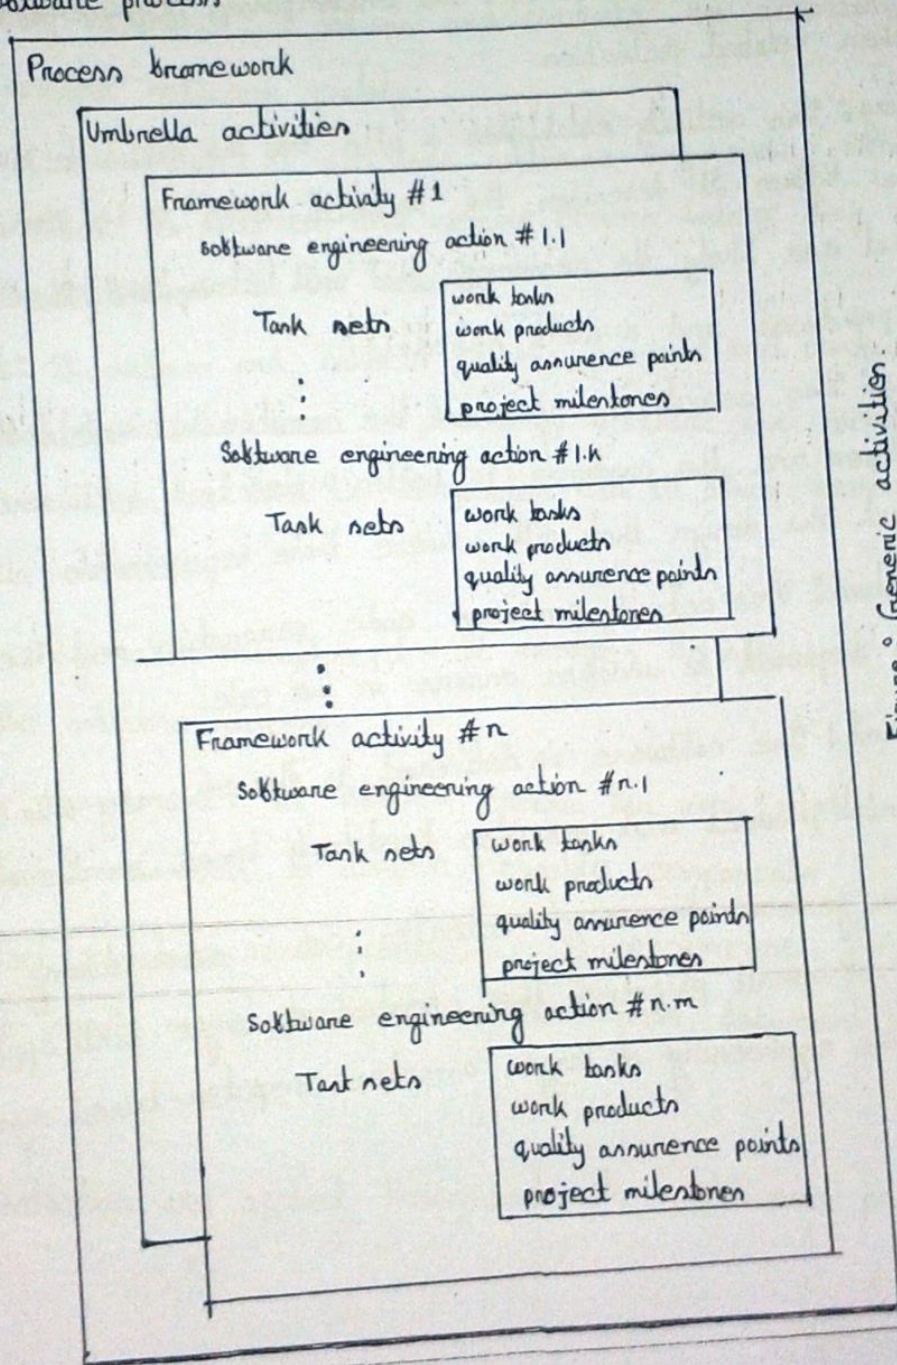 software process
Process framework
Umbrella activities
Framework activity #1
software engineering action #1.1
Task sets
work tasks
work products
quality assurence points
project milestones
Software engineering action #1.k
Task sets
work tasks
work products
quality assurence points
project milestones
Framework activity #n
Software engineering action #n.1
Task sets
work tasks
work products
quality assurence points
project milestones
Software engineering action #n.m
Task sets
work tasks
work products
quality assurence points
project milestones
Figure : Generic activities